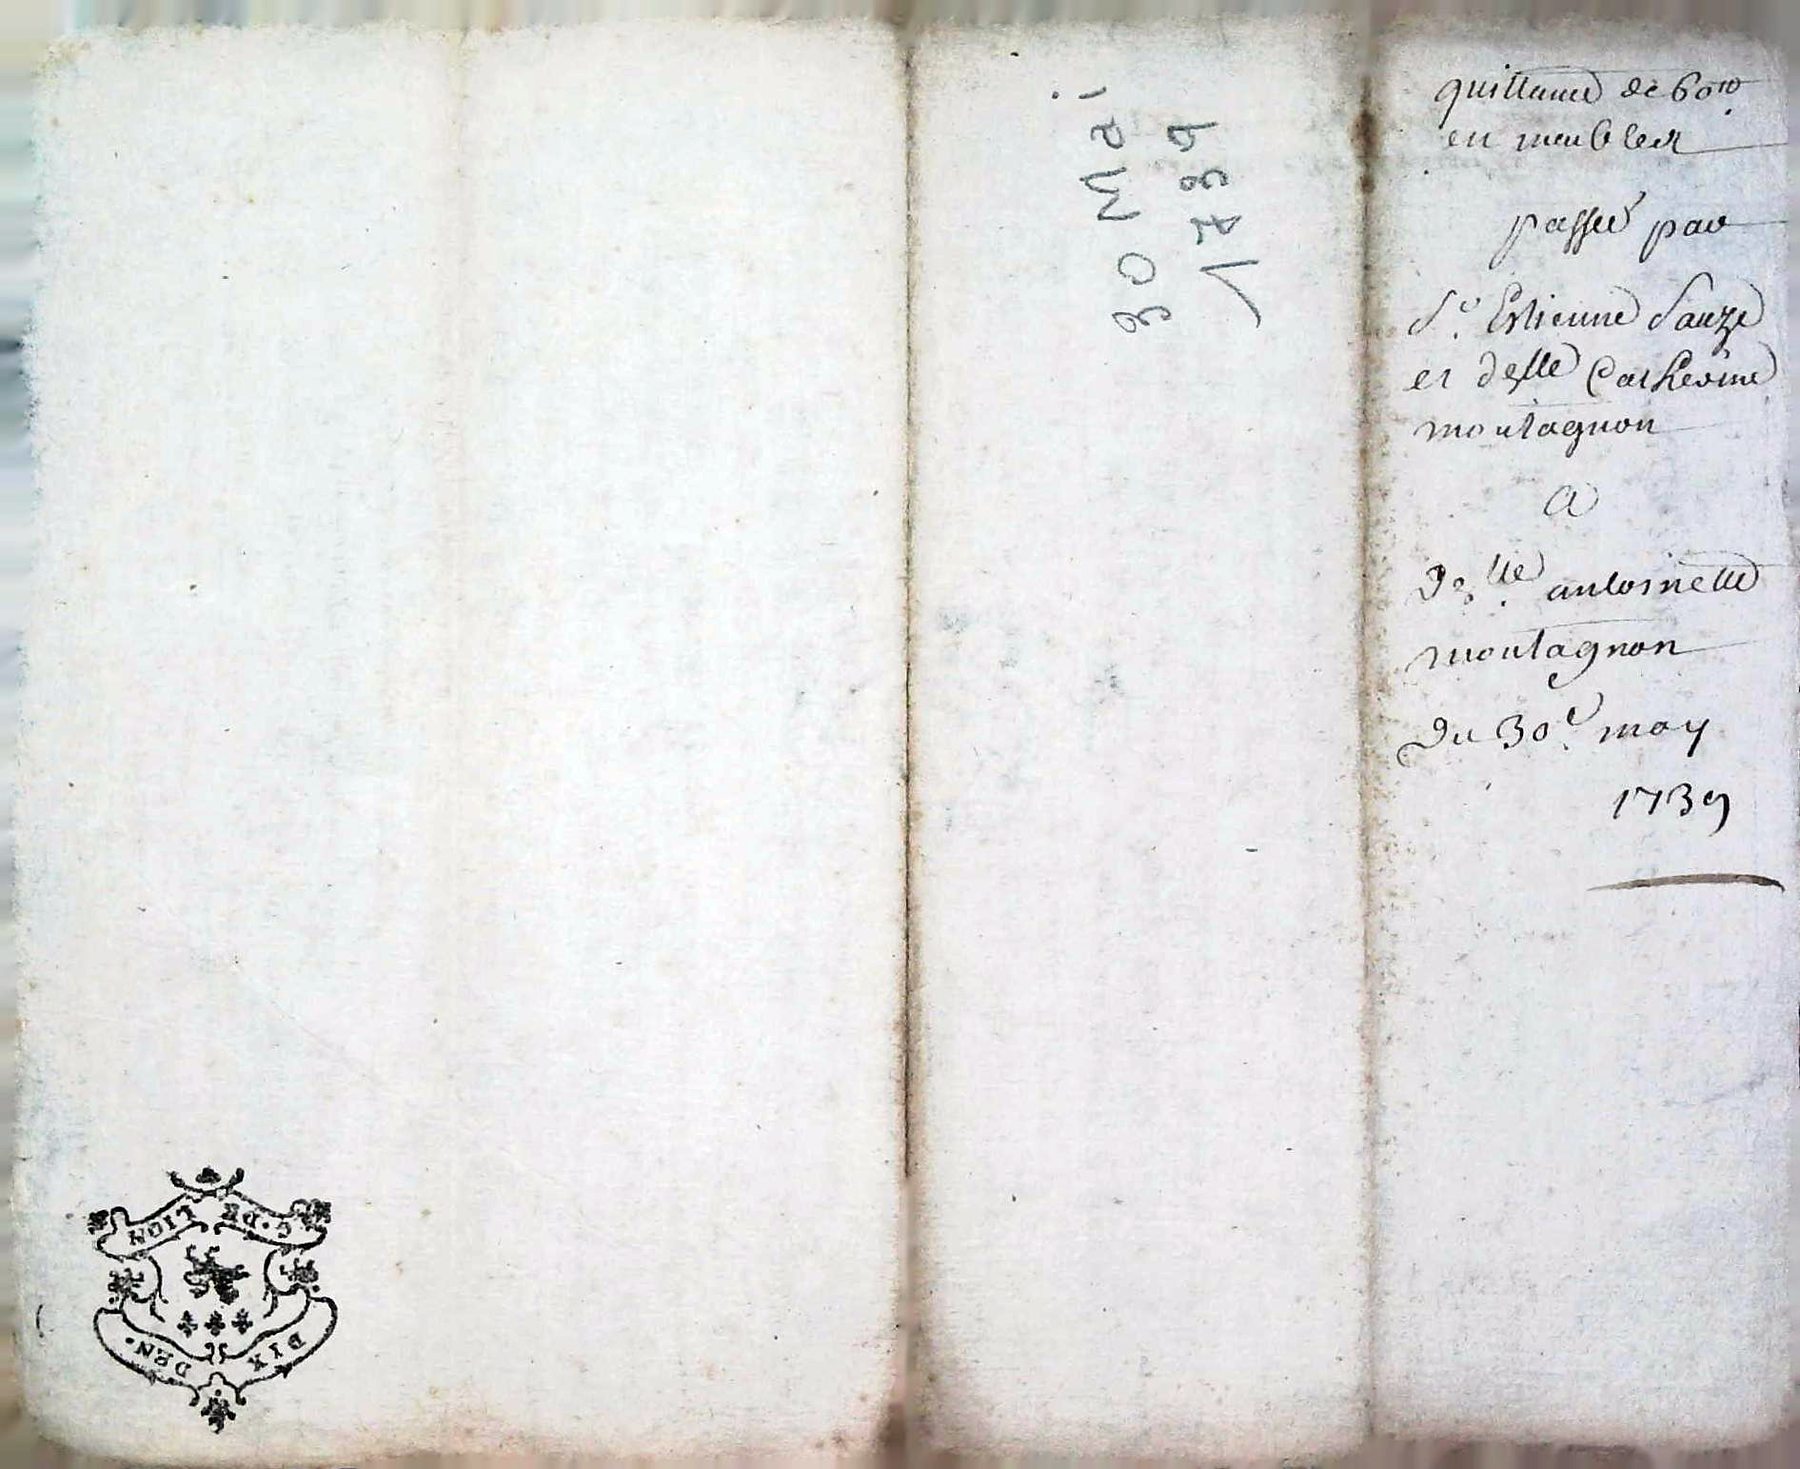 quittance de 60 ₶
en meubles
passée par
Sr. Estienne Sauze
et delle Catherine
montagnon
A
Delle. antoinette
montagnon
Du 30e. may
1739
30 Mai
1739
G. DE LION
DIX DEN.